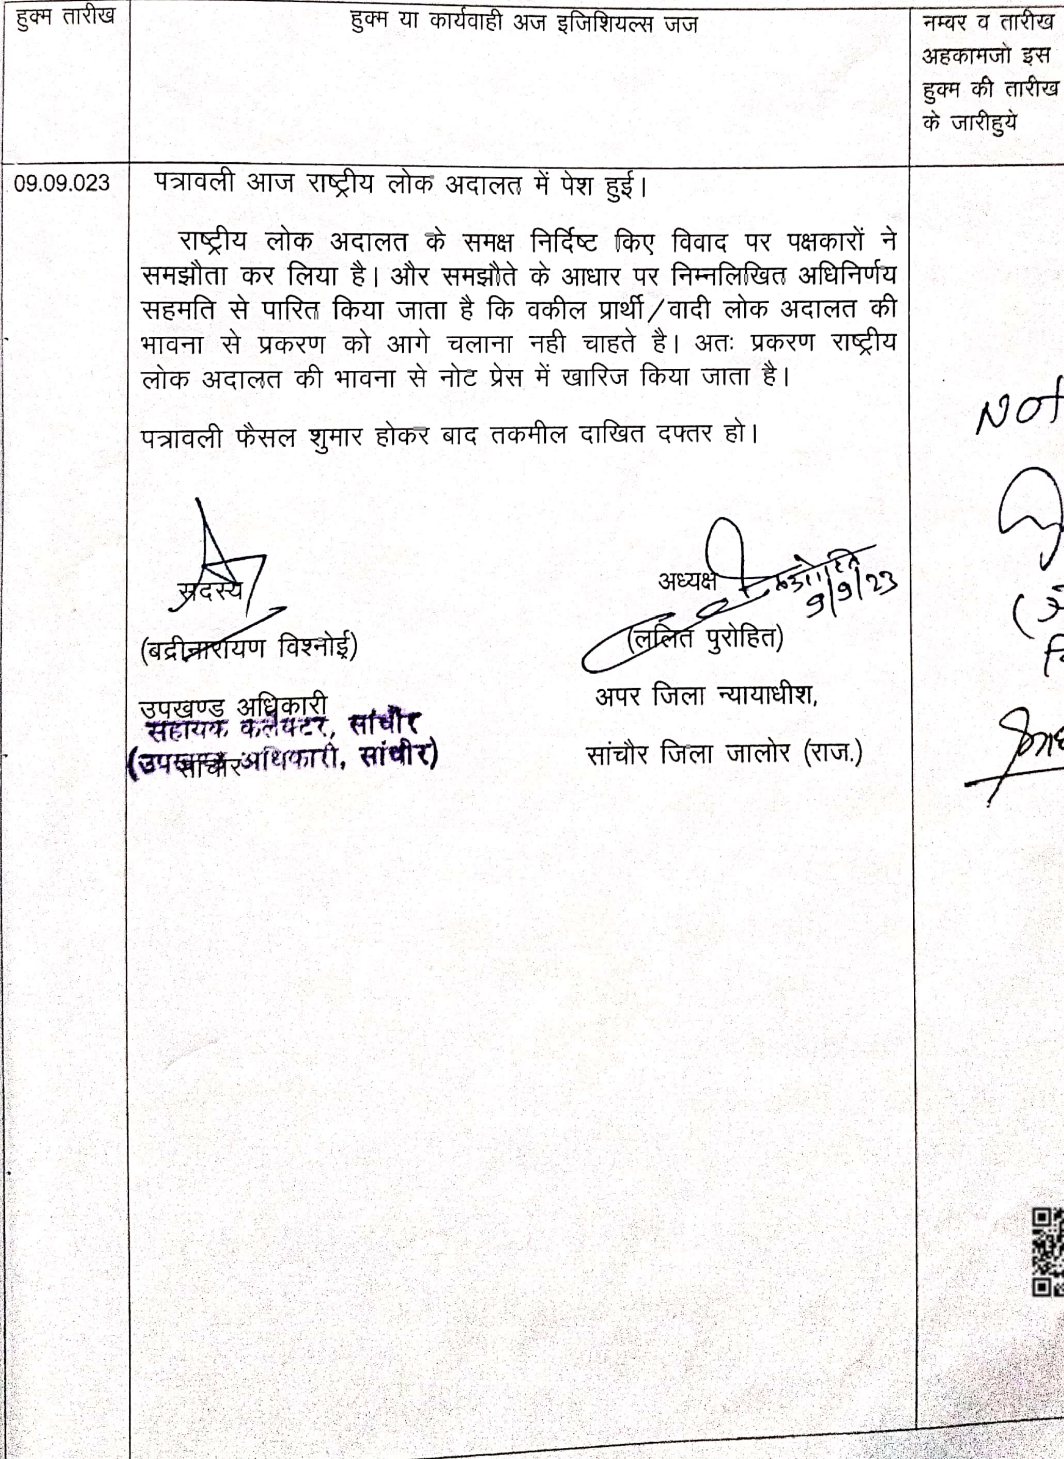 हुक्म तारीख
हुक्म या कार्यवाही अज इजिशियल्स जज
नम्वर व तारीख
अहकामजो इस
हुक्म की तारीख
के जारीहुये
09.09.023
पत्रावली आज राष्ट्रीय लोक अदालत में पेश हुई।
राष्ट्रीय लोक अदालत के समक्ष निर्दिष्ट किए विवाद पर पक्षकारों ने
समझौता कर लिया है। और समझौते के आधार पर निम्नलिखित अधिनिर्णय
सहमति से पारित किया जाता है कि वकील प्रार्थी/वादी लोक अदालत की
भावना से प्रकरण को आगे चलाना नही चाहते है। अतः प्रकरण राष्ट्रीय
लोक अदालत की भावना से नोट प्रेस में खारिज किया जाता है।
पत्रावली फैसल शुमार होकर बाद तकमील दाखित दफ्तर हो।
Not
सदस्य
(बद्रीनारायण विश्नोई)
उपखण्ड अधिकारी
सहायक कलेक्टर, सांचौर
(उपखण्ड अधिकारी, सांचौर)
सांचौर
अध्यक्ष
9/9/23
(ललित पुरोहित)
अपर जिला न्यायाधीश,
सांचौर जिला जालोर (राज.)